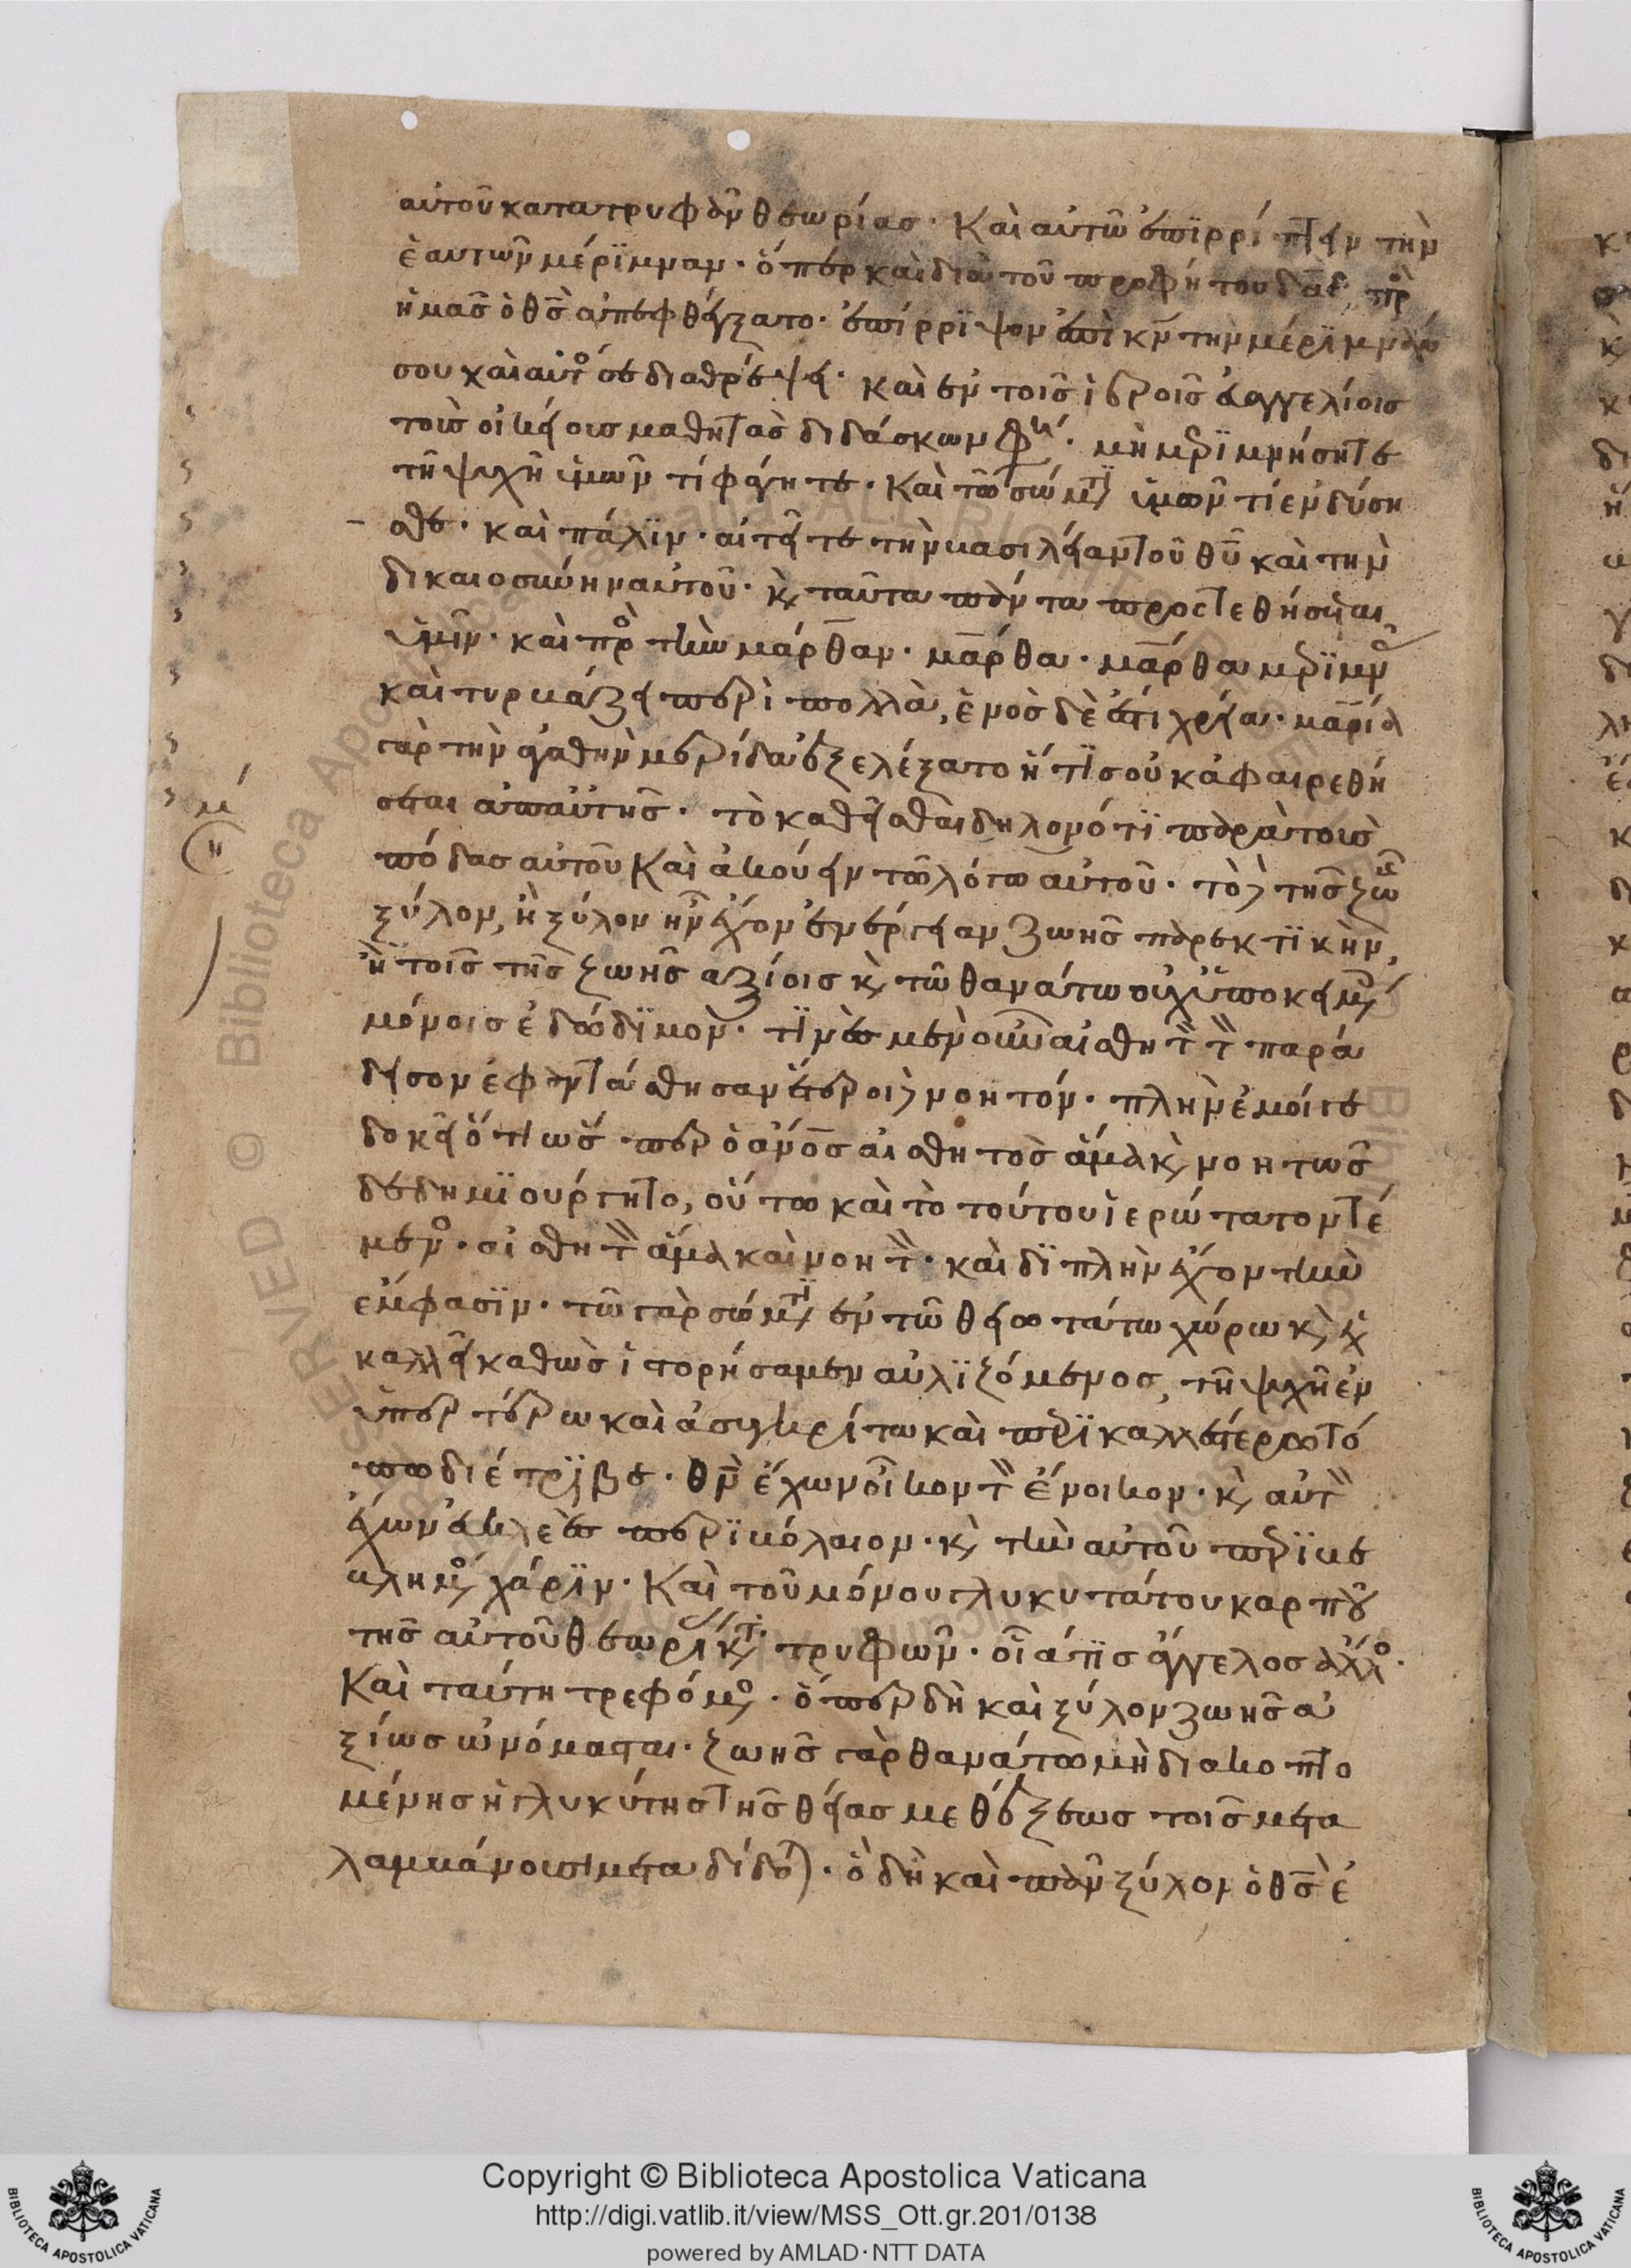 αὐτοῦ κατατρυφᾶν θεωρίας· Καὶ αὐτῶ ἐπϊρρίπτειν τὴν
ἑαυτῶν μέρϊμναν· ὅπερ καὶ διὰ τοῦ προφήτου δᾱδ πρὸ
ἡμᾶς ὁ θ̅ς̅ ἀπεφθέγξατο· ἐπίρρϊψον ἐπὶ κ̅ν̅ τὴν μέρϊμνάν
σου καὶ αὐτὸ σε διαθρέψει· καὶ ἐν τοῖς ἱεροῖς εὐαγγελίοις
τοὺς οἰκείους μαθητὰς διδάσκων φη· μὴ μερϊμνήσητε
τῆ ψυχῆ ὑμῶν τί φάγητε· Καὶ τῶ σώμτϊ ὑμῶν τί ἐνδύση
σθε· καὶ πάλϊν· αἰτεῖτε τὴν βασιλείαν τοῦ θ̅υ̅ καὶ τὴν
δικαιοσύνην αὐτοῦ· κ ταῦτα πάντα προστεθήσεται
ὑμῖν· καὶ πρὸ τὴν μάρθαν· μάρθα· μάρθα μερϊμν
καὶ τυρβάζει περὶ πολλὰ, ἑνὸς δὲ ἐστι χρεία· μαρία
γὰρ τὴν ἀγαθὴν μερίδα ἐξελέξατο ἥτϊς οὐκ ἀφαιρεθή
σεται ἀπαὐτῆς· τὸ καθεῖσθαι δηλονότϊ παρὰ τοὺς
πόδας αὐτοῦ Καὶ ἀκούειν τῶ λόγω αὐτοῦ· τὸ δὲ τῆς ζω
ξύλον, ἢ ξύλον ἦν ἔχον ἐνέργειαν ζωῆς παρεκτϊκὴν,
ἢ τοῖς τῆς ζωῆς ἀξίοις κ τῶ θανάτω οὐχ ὑποκειμ
μόνοις ἐδώδϊμον· τϊνὲς μὲν οὖν αἰσθητ τ παρά
δεισον ἐφαντάσθησαν ἕτεροι δὲ νοητόν· πλὴν ἔμοιγε
δοκεῖ ὅτι ὥσπερ ὁ ἄν̅ο̅ς αἰσθητὸς ἅμα κ νοητῶς
δεδημϊούργητο, οὕτω καὶ τὸ τούτου ἱερώτατον τέ
μεν· αἰσθητ ἅμα καὶ νοητ· καὶ δϊπλὴν ἔχον τὴν
ἔμφασϊν· τῶ γὰρ σώμτϊ ἐν τῶ θειοτάτω χώρω κ
καλλεῖ καθὼς ἱστορήσαμεν αὐλϊζόμενος, τῆ ψυχῆ ἐν
ὑπερτέρω καὶ ἀσυγκρίτω καὶ περϊκαλλεστέρω τό
πω διέτρϊβε· θ̅ν̅ ἔχων οἶκον τ ἔνοικον· κ αὐτ
ἔχων εὐκλεὲς περϊβόλαιον· κ τὴν αὐτοῦ περϊβε
βλημ χάρϊν· Καὶ τοῦ μόνου γλυκυτάτου καρποῦ
τῆς αὐτοῦ θεωρί κτ τρυφῶν· οἷά τϊς ἄγγελος ἄλλο·
Καὶ ταύτη τρεφόμ· ὅπερ δὴ καὶ ξύλον ζωῆς ἀ
ξίως ὠνόμασται· ζωῆς γὰρ θανάτω μὴ διακοπτο
μένης ἡ γλυκύτης τῆς θείας μεθέξεως τοῖς μετα
λαμβάνουσι μεταδίδο· ὃ δὴ καὶ πᾶν ξύλον ὁ θ̅ς̅ ἐ
μ
η
Copyright © Biblioteca Apostolica Vaticana
http://digi.vatlib.it/view/MSS_Ott.gr.201/0138
powered by AMLAD·NTT DATA